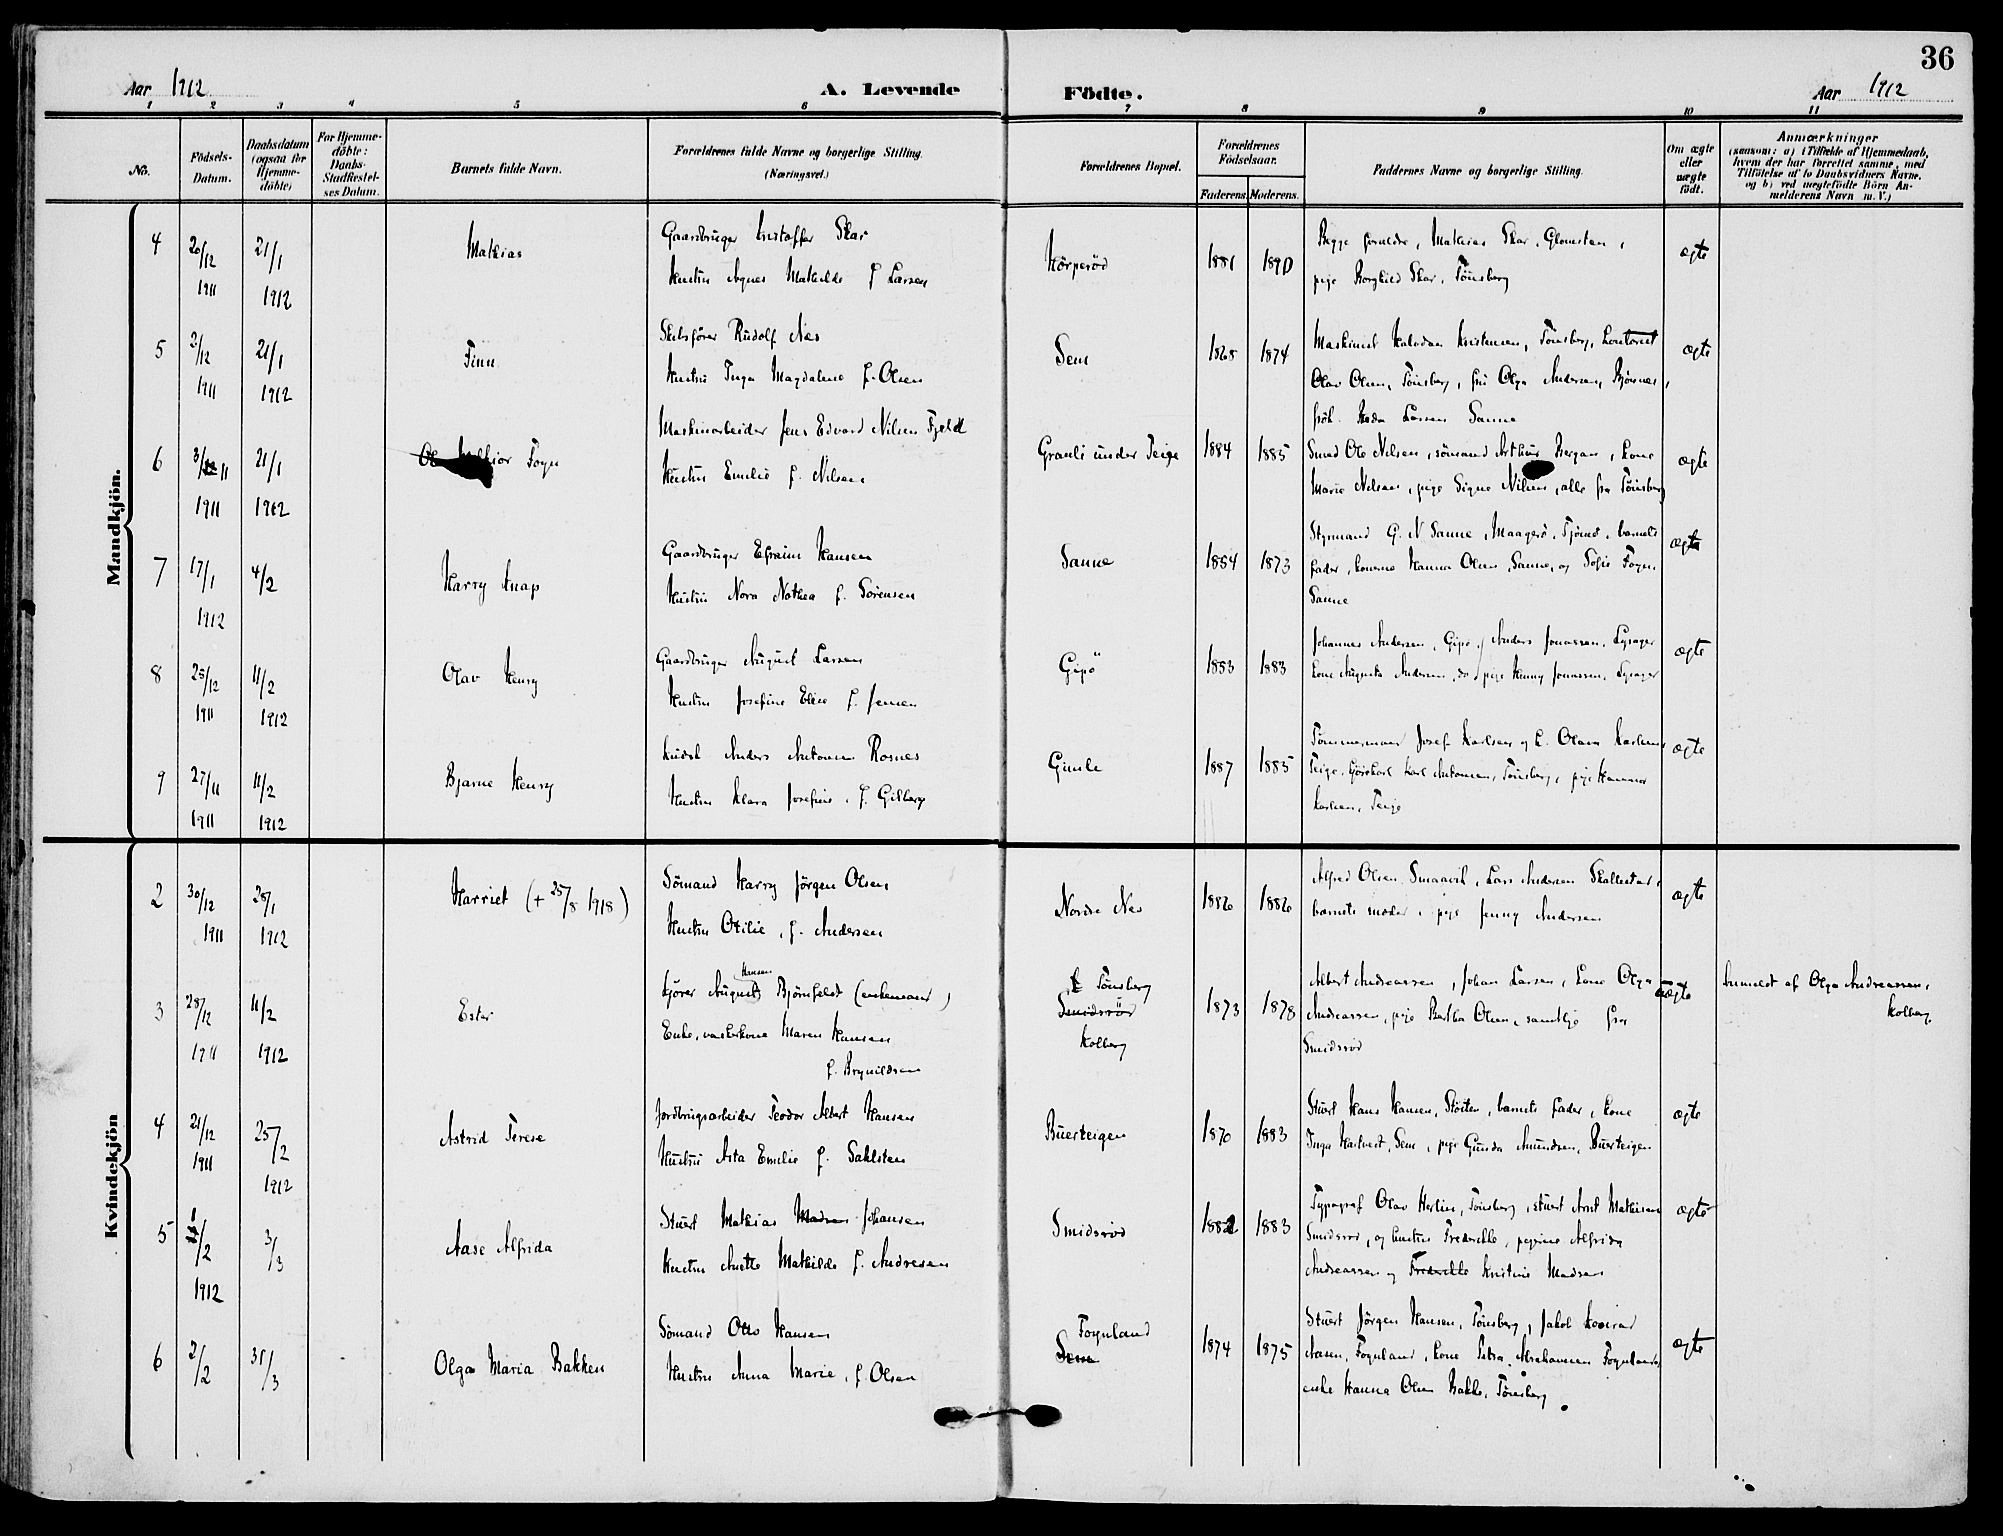 36
Aar 1912
A. Levende
Födte.
Aar 1912
1 2 3 4 5 6 7 8 9 10 11
No.
Födsels-
Datum.
Daabsdatum
(ogsaa for
Hjemme-
döbte)
For Hjemme-
döbte:
Daabs-
Stadfæstel-
ses Datum.
Barnets fulde Navn.
Forældrenes fulde Navne og borgerlige Stilling.
(Næringsvei.)
Forældrenes Bopæl.
Forældrenes
Födselsaar.
Faderens. Moderens.
Faddernes Navne og borgerlige Stilling.
Om ægte
eller
uægte
födt.
Anmærkninger
(saasom: a) i Tilfælde af Hjemmedaab,
hvem der har forrettet samme, med
Tilföielse af to Daabsvidners Navne.
og b) ved uægtefödte Börn An-
melderens Navn m. V.)
Mandkjön.
4 20/12 1911 21/1 1912 Mathias
Gaardbruger Kristoffer Skar
Hustru Agnes Mathilde f. Larsen
Hörperöd 1881 1890
Begge foreldre, Mathias Skar, Glomsten,
pige Borghild Skar, Tönsberg
ægte
5 2/12 1911 21/1 1912 Finn
Skibsförer Rudolf Næs
Hustru Inga Magdalene f. Olsen
Sem 1868 1874
Maskinist Halvdan Kristensen, Tönsberg, kontorist
Olav Olsen, Tönsberg, fru Olga Andersen, Björnnes,
frök. Larsen Sanne
ægte
6 3/11 1911 21/1 1912 Foyn
Maskinarbeider Jens Edvard Nilsen Fjeld
Hustru Emilie f. Nilsen
Granli under Teige 1884 1885
Smed Ole Nilsen, sömand Arthur Bergan, kone
Marie Nilsen, pige Signe Nilsen, alle fra Tönsberg
ægte
7 17/1 1912 4/2 Harry Knap
Gaardbruger Efraim Hansen
Hustru Nora Nathea f. Sörensen
Sanne 1854 1873
Styrmand G. N Sanne, Maagerö, Tjömö, barnets
fader, konerne Hanna Olsen, Sanne, og Sofie Foyn,
Sanne
ægte
8 25/12 1911 11/2 1912 Olav Henry
Gaardbruger August Larsen
Hustru Josefine Elise f. Jensen
Gipö 1883 1883
Johannes Andersen, Gipö, Anders Jonassen, Lysager
kone Augusta Andersen, do, pige Henny Jonassen, Lysager
ægte
9 27/11 1911 11/2 1912 Bjarne Henry
Kudsk Anders Antonsen Rosnes
Hustru Klara Josefine, f. Gilberg
Gimle 1887 1885
Tömmermand Josef Karlsen og h. Olava Karlsen,
Teige, Karl Antonsen, Tönsberg, pige Hanna
Karlsen, Teige
ægte
Kvindekjön
2 30/12 1911 28/1 1912 Harriet (+ 25/8 1918)
Sömand Harry Jörgen Olsen
Hustru Otilie, f. Andersen
Nordre Nes 1886 1886
Alfred Olsen Smaavik, Lars Andersen Skallestad,
barnets moder, pige Jenny Andersen
ægte
3 28/12 1911 11/2 1912 Ester
Kjörer August Hansen Björnfeldt (enkemand)
Enke, vaskekone Maren Hansen
f. Brynildsen
Tönsberg
Smidsröd
Kolberg
1873 1878
Albert Andreassen, Johan Larsen, kone Olga
Andreassen, pige Bertha Olsen, samtlige fra
Smidsröd
uægte
Anmeldt af Olga Andreassen,
Kolberg
4 21/12 1911 25/2 1912 Astrid Terese
Jordbrugsarbeider Teodor Albert Hansen
Hustru Asta Emilie f. Sahlsten
Buerteigen 1870 1883
Stuert Hans Hansen, Slöiten, barnets fader, kone
Inga Hartvest, Sem, pige Gunda Amundsen, Buerteigen
ægte
5 1/2 1912 3/3 Aase Alfrida
Stuert Mathias Madsen Johansen
Hustru Anette Mathilde f. Andresen
Smidsröd 1882 1883
Typograf Olav Herlin, Tönsberg, stuert Arnt Mathisen
Smidsröd, og hustru Fredrikke, pigerne Alfrida
Andreassen og Fredrikke Kristine Madsen
ægte
6 2/2 31/3 Olga Maria Bakken
Sömand Otto Hansen
Hustru Anna Marie, f. Olsen
Foynland
Sem
1874 1875
Stuert Jörgen Hansen, Tönsberg, Jakob Konrad
Aasen, Foynland, kone Petra Abrahamsen Foynland,
enke Hanna Olsen Bakke, Tönsberg
ægte